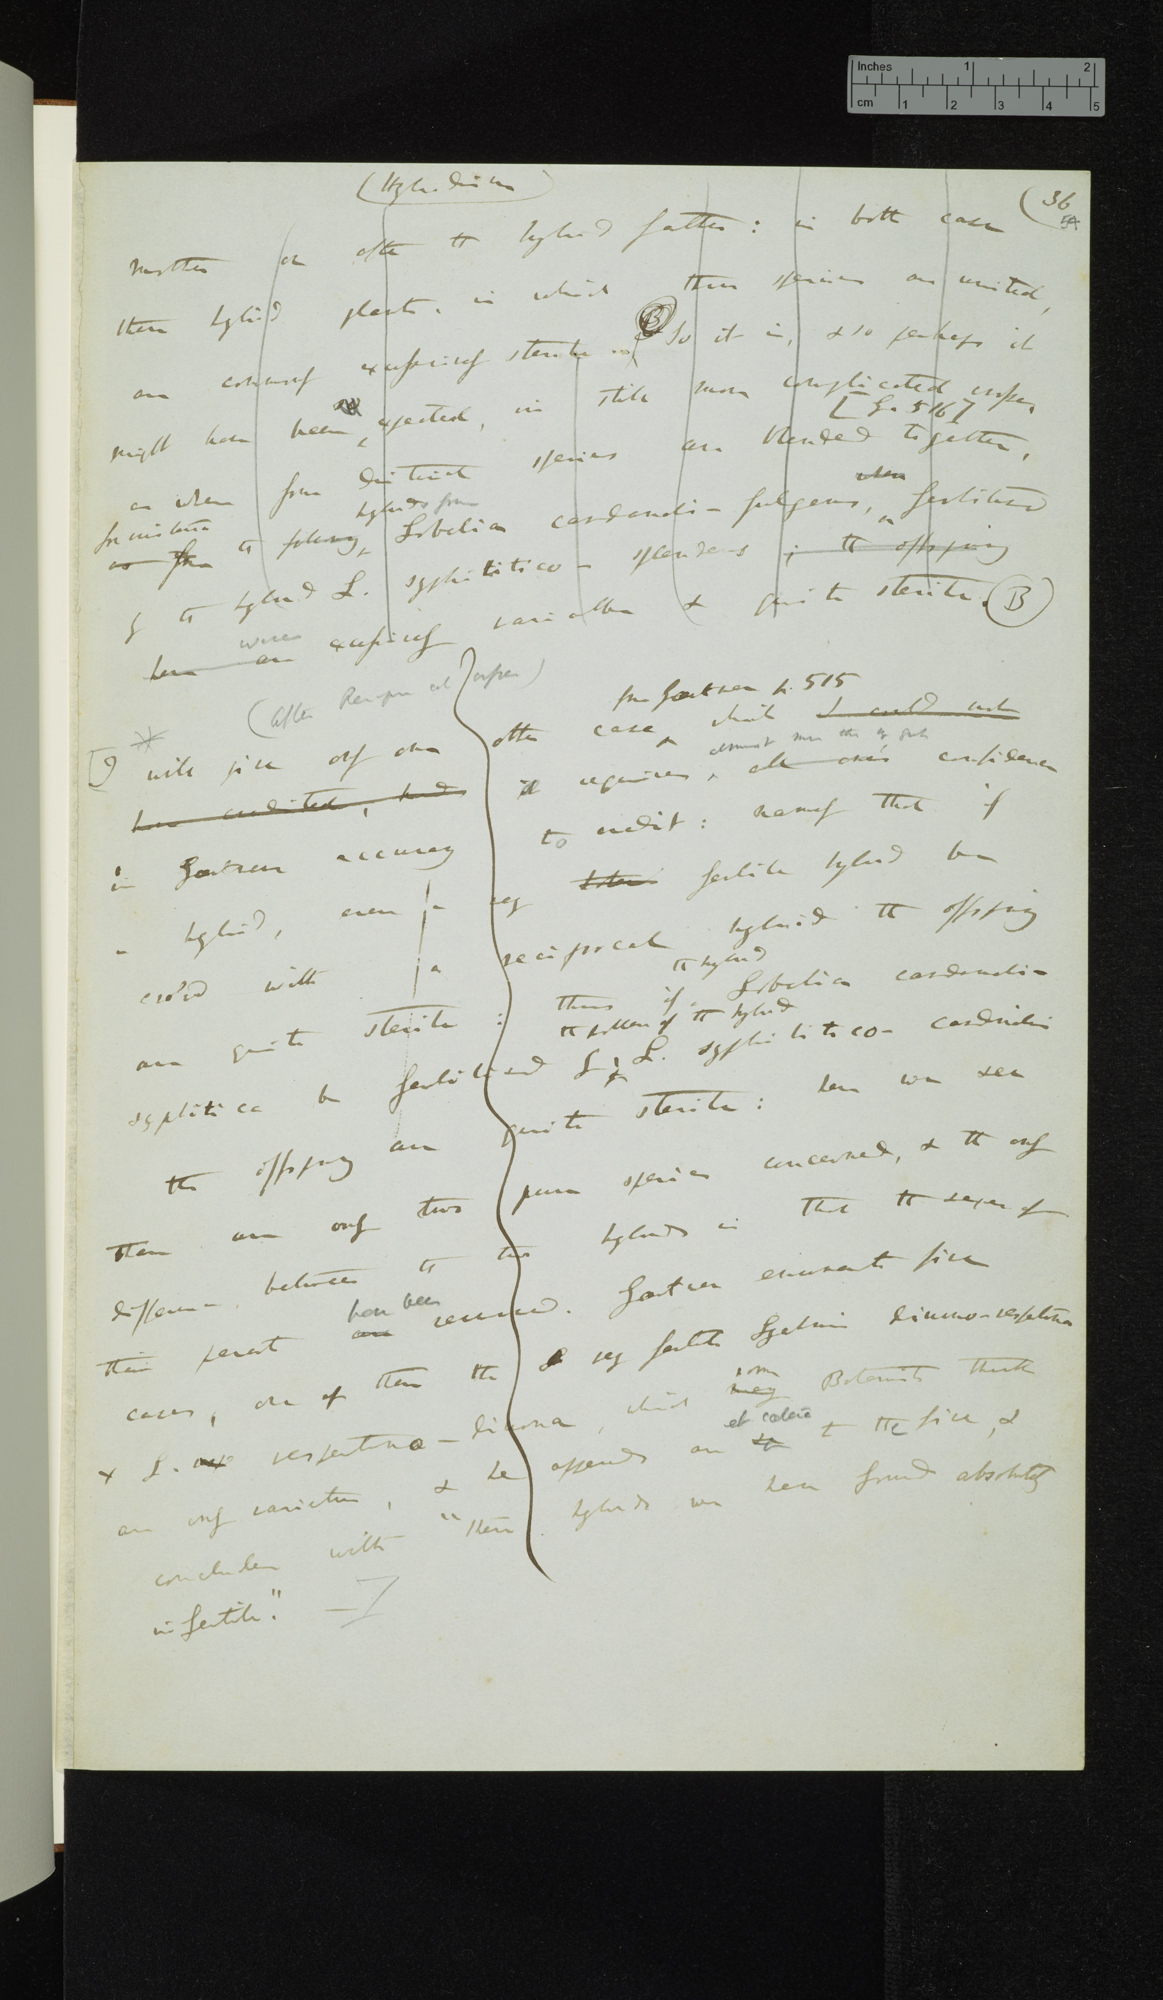 Inches 1 2
cm 1 2 3 4 5
(Hybridism)
(36
mother or often the hybrid father : in both cases
these hybrid plants, in which three species are united,
are commonly excessively sterile. (B) So it is, & so perhaps it
might have been expected, in still more complicated crosses,
[G. 516]
as when four distinct species are blended together,
for instance hybrids from when
as the following Lobelia cardinali-fulgens, fertilised
by the hybrid L. syphilitico-splendens ; the offspring
were
here are excessively variable & quite sterile. (B)
(After Reciprocal crosses)
from Gärtner p. 515
[I will give only one other case, which I could not
almost more than
have credited, it requires, all one's confidence
in Gärtner accuracy to credit : namely that if
a hybrid, even a very fertile hybrid be
cros'd with a reciprocal hybrid the offspring
the hybrid
are quite sterile : thus if Lobelia cardinali-
the pollen of the hybrid
syphilitica be fertilised by L. syphilitico-cardinalis
the offspring are quite sterile : here we see
there are only two pure species concerned, & the only
difference between the two hybrids is that the sexes of
have been
their parents are reversed. Gärtner enumerates five
cases, one of them the very fertile Lychnis diurno-vespertina
some
& L. vespertino-diurna, which many Botanists think
et cetera
are only varieties, & he appends an to the five, &
concludes with "these hybrids we have found absolutely
infertile".